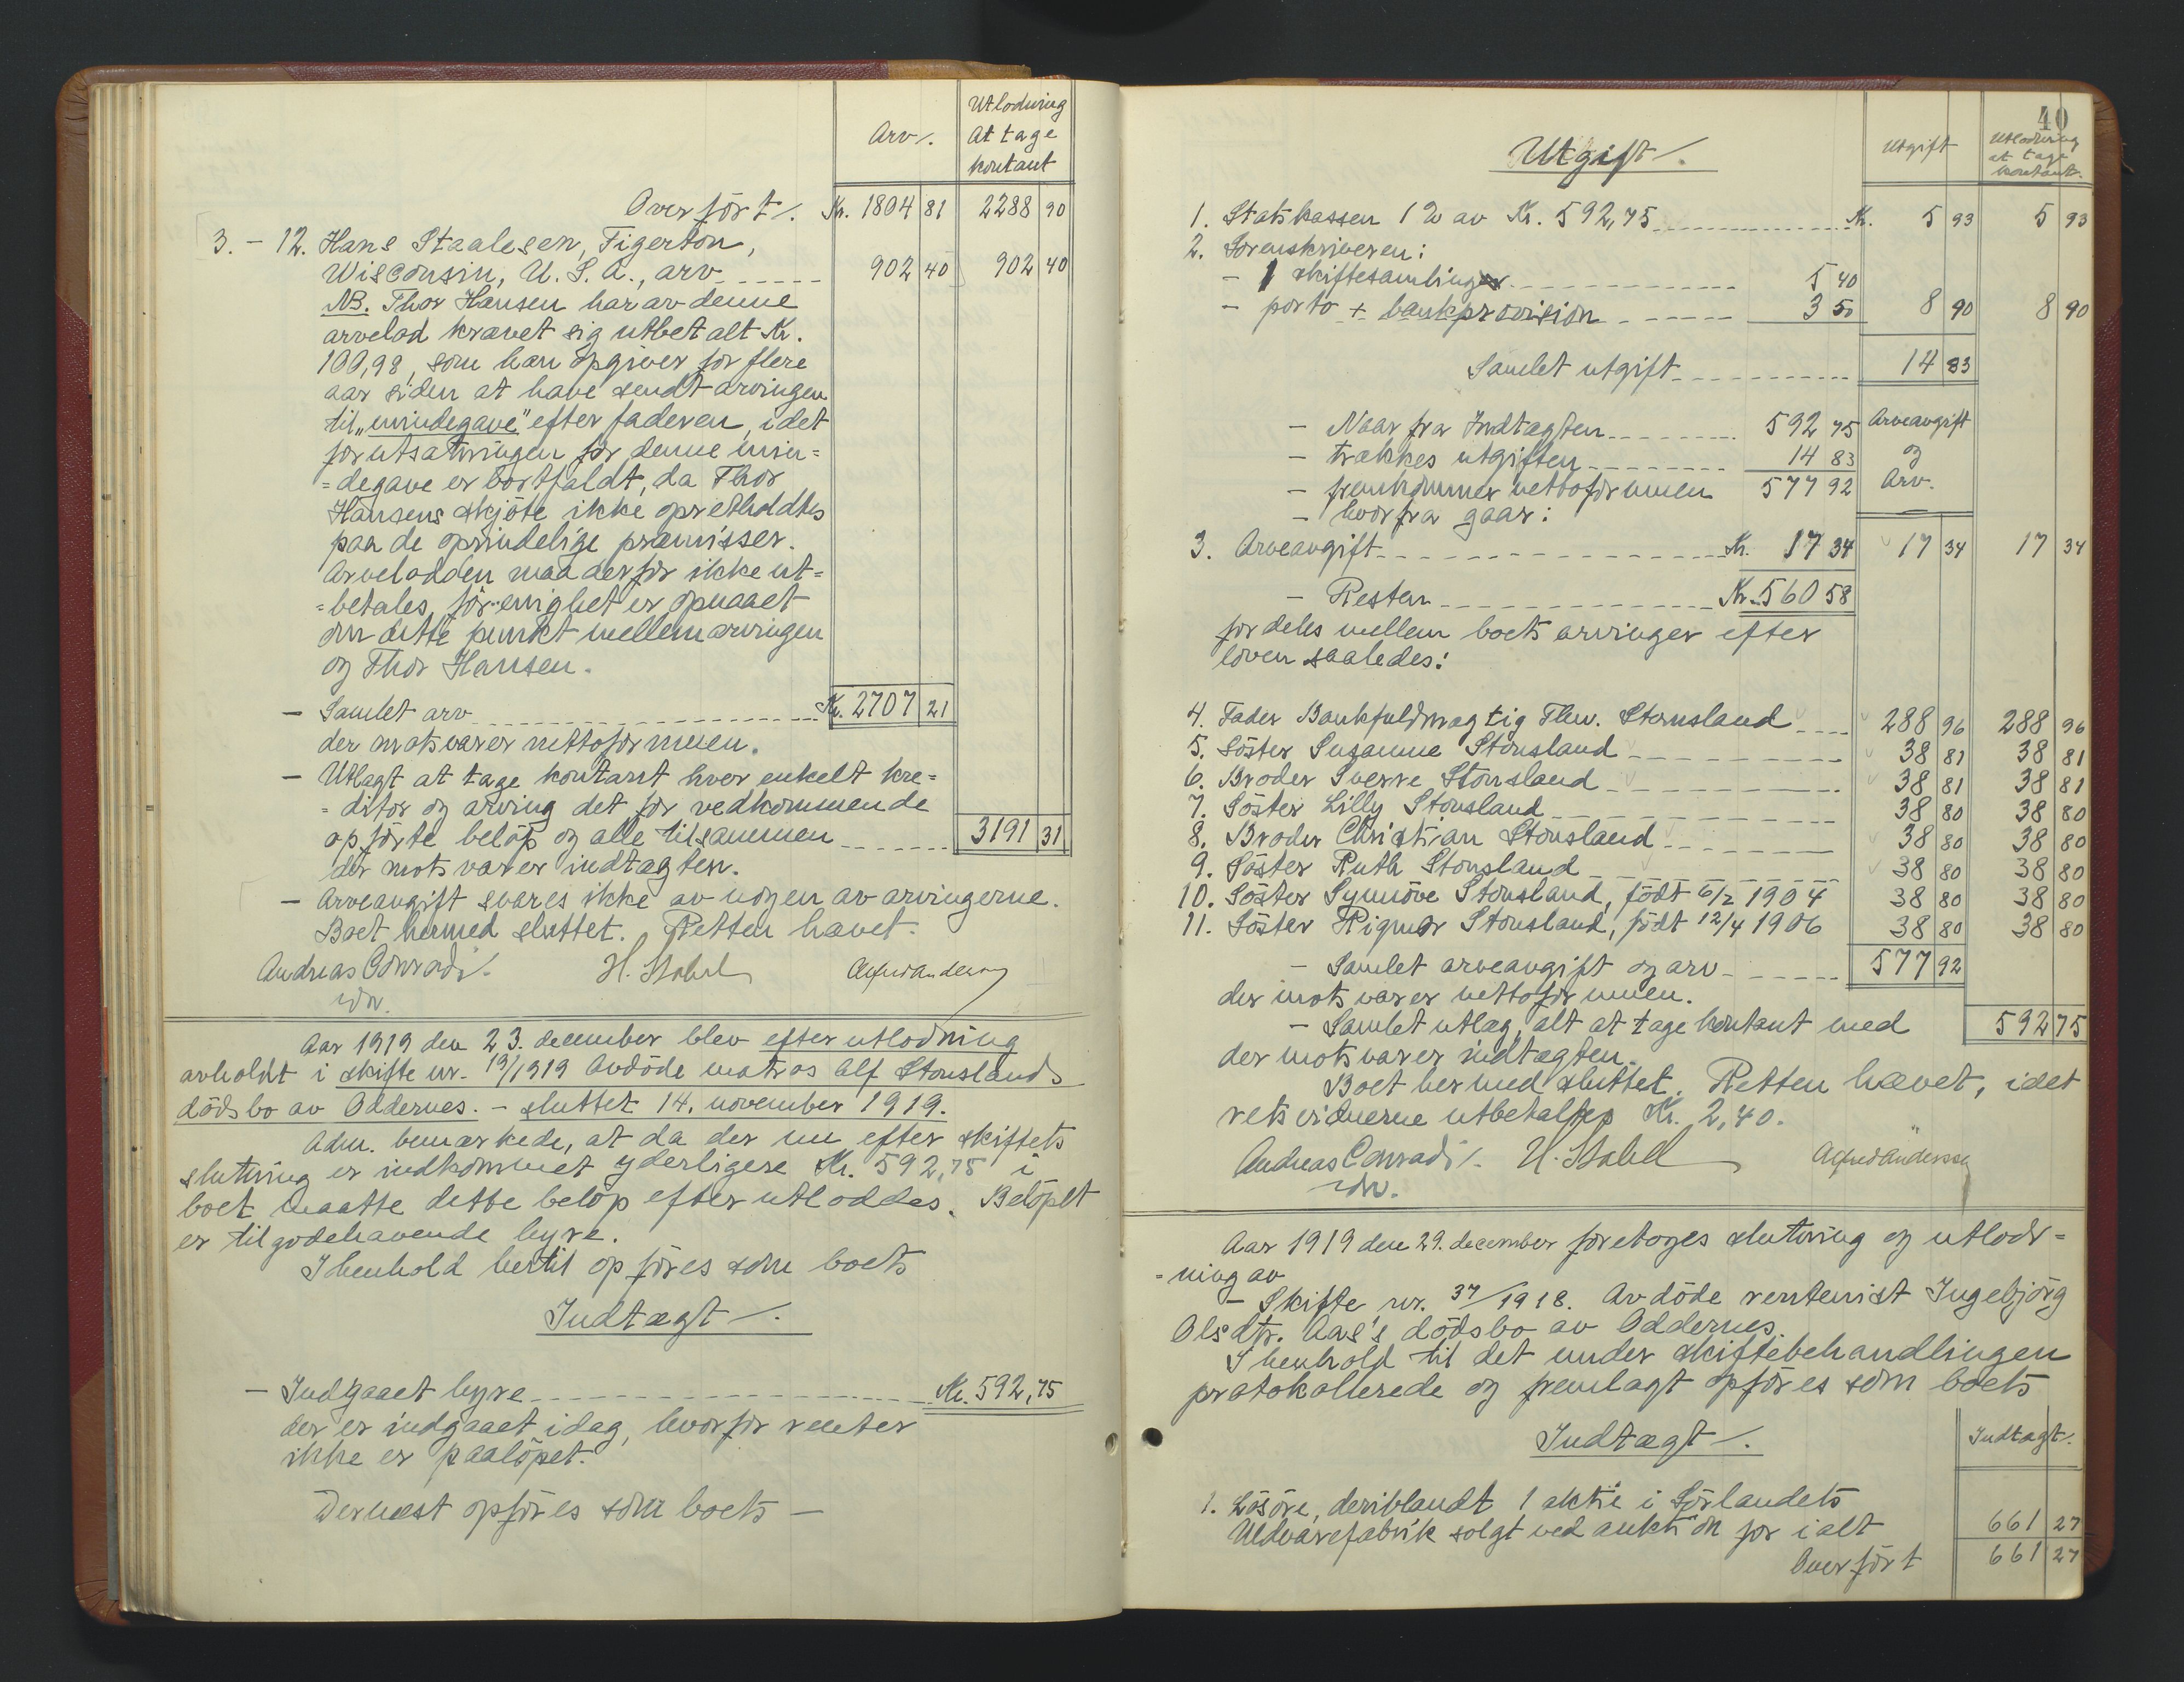 Arv./. Utlodning
At tage
kontant
Overfört/. Kr. 1804 81 2288 90
3. - 12. Hans Staalesen, Tigerton,
Wisconsin, U. S. A., arv 902 40 902 40
NB. Thor Hansen har av denne
arvelod krævet sig utbetalt Kr.
100,98, som han opgiver for flere
aar siden at have sendt arvingen
til "mindegave" efter faderen, idet
forutsætningen for denne min=
=degave er bortfaldt, da Thor
Hansens skjöte ikke opretholdtes
paa de oprindelige præmisser.
Arvelodden maa derfor ikke ut=
=betales, för enighet er opnaaet
om dette punkt mellem arvingen
og Thor Hansen.
- Samlet arv Kr. 2707 21
der motsvarer nettoformuen.
- Utlagt at tage kontant hver enkelt kre=
=ditor og arving det for vedkommende
opförte belöp og alle tilsammen 3191 31
der motsvarer indtægten.
- Arveavgift svares ikke av nogen av arvingerne.
Boet hermed sluttet. Retten hævet.
Andreas Conradi/. H. Stabel Alfred Andersen
Aar 1919 den 23. december blev efterutlodning
avholdt i skifte nr. 19/1919 Avdöde matros Alf Stouslands
dödsbo av Oddernes. - sluttet 14. november 1919.
Adm. bemerkede, at da der nu efter skiftets
slutning er indkommet yderligere Kr. 592,75 i
boet maatte dette belöp efterutloddes. Belöpet
er tilgodehavende hyre.
I henhold hertil opföres som boets
Indtægt/.
- Indgaaet hyre Kr. 592,75
der er indgaaet idag, hvorfor renter
ikke er paalöpet.
Dernæst opföres som boets -
40
Utgift/. Utgift Utlodning
at tage
kontant.
1. Statskassen 1% av Kr. 592,75 Kr. 5 93 5 93
2. Sorenskriveren:
- 1 skiftesamling 5 40
- porto + bankprovision 3 50 8 90 8 90
Samlet utgift 14 83
- Naar fra Indtægten 592 75 Arveavgift
- trækkes utgiften 14 83 og
- fremkommer nettoformuen 577 92 Arv.
- hvorfra gaar:
3. Arveavgift Kr. 17 34 17 34 17 34
- Resten Kr. 560 58
fordeles mellem boets arvinger efter
loven saaledes:
4. Fader Bankfuldmægtig Thv. Stousland 288 96 288 96
5. Söster Susanne Stousland 38 81 38 81
6. Broder Sverre Stousland 38 81 38 81
7. Söster Lilly Stousland 38 80 38 80
8. Broder Christian Stousland 38 80 38 80
9. Söster Ruth Stousland 38 80 38 80
10. Söster Synnöve Stousland, födt 6/2 1904 38 80 38 80
11. Söster Rigmor Stousland, födt 12/4 1906 38 80 38 80
- Samlet arveavgift og arv 577 92
der motsvarer nettoformuen.
- Samlet utlæg, alt at tage kontant med 592 75
der motsvarer indtægten.
Boet hermed sluttet. Retten hævet, idet
retsvidnerne utbetaltes Kr. 2,40.
Andreas Conradi/. H. Stabel Alfred Andersen
Aar 1919 den 29. december foretoges slutning og utlod=
=ning av
- Skifte nr. 37/1918. Avdöde rentenist Ingebjörg
Olsdtr. Aas's dödsbo av Oddernes.
I henhold til det under skiftebehandlingen
protokollerede og fremlagt opföres som boets
Indtægt/. Indtægt/.
1. Lösöre, deriblandt 1 aktie i Sörlandets
Uldvarefabrik solgt ved auktion for ialt 661 27
Overfört 661 27